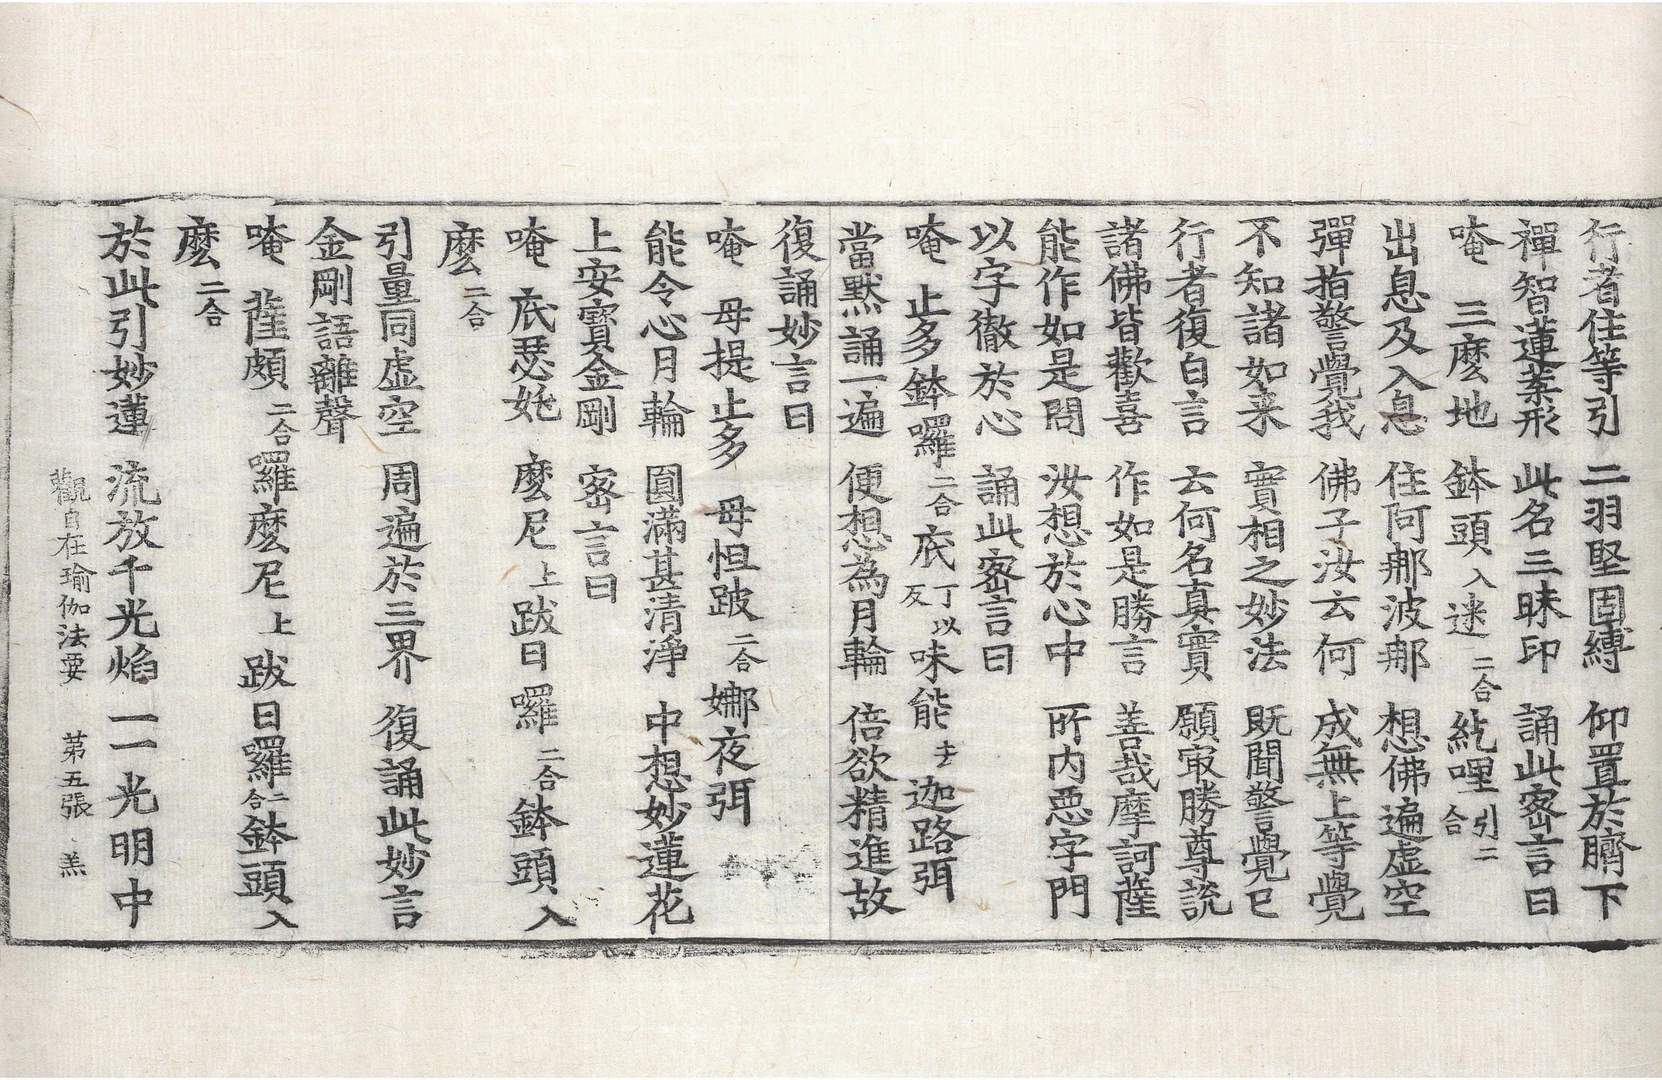 行者住等引　二羽堅固縛　仰置於臍下
禪智蓮葉形　此名三昧印　誦此密言曰
唵　三麼地　鉢頭入迷二合紇哩引二合
出息及入息　住阿那波那　想佛遍虛空
彈指警覺我　佛子汝云何　成無上等覺
不知諸如来　實相之妙法　既聞警覺已
行者復白言　云何名真實　願㝡勝尊説
諸佛皆歡喜　作如是勝言　善哉摩訶薩
能作如是問　汝想於心中　所内惡字門
以字徹於心　誦此密言曰
唵　止多鉢囉二合底丁以反味能去迦路弭
當默誦一遍　便想為月輪　倍欲精進故
復誦妙言曰
唵　母提止多　母怛跛二合娜夜弭
能令心月輪　圓滿甚清淨　中想妙蓮花
上安寳金剛　密言曰
唵　底瑟姹　麼尼上跋日囉二合鉢頭入
麼二合
引量同虛空　周遍於三界　復誦此妙言
金剛語離聲
唵　薩頗二合羅麼尼上跋日羅二合鉢頭入
麼二合
於此引妙蓮　流放千光焰　一一光明中
觀自在瑜伽法要　第五張　羔